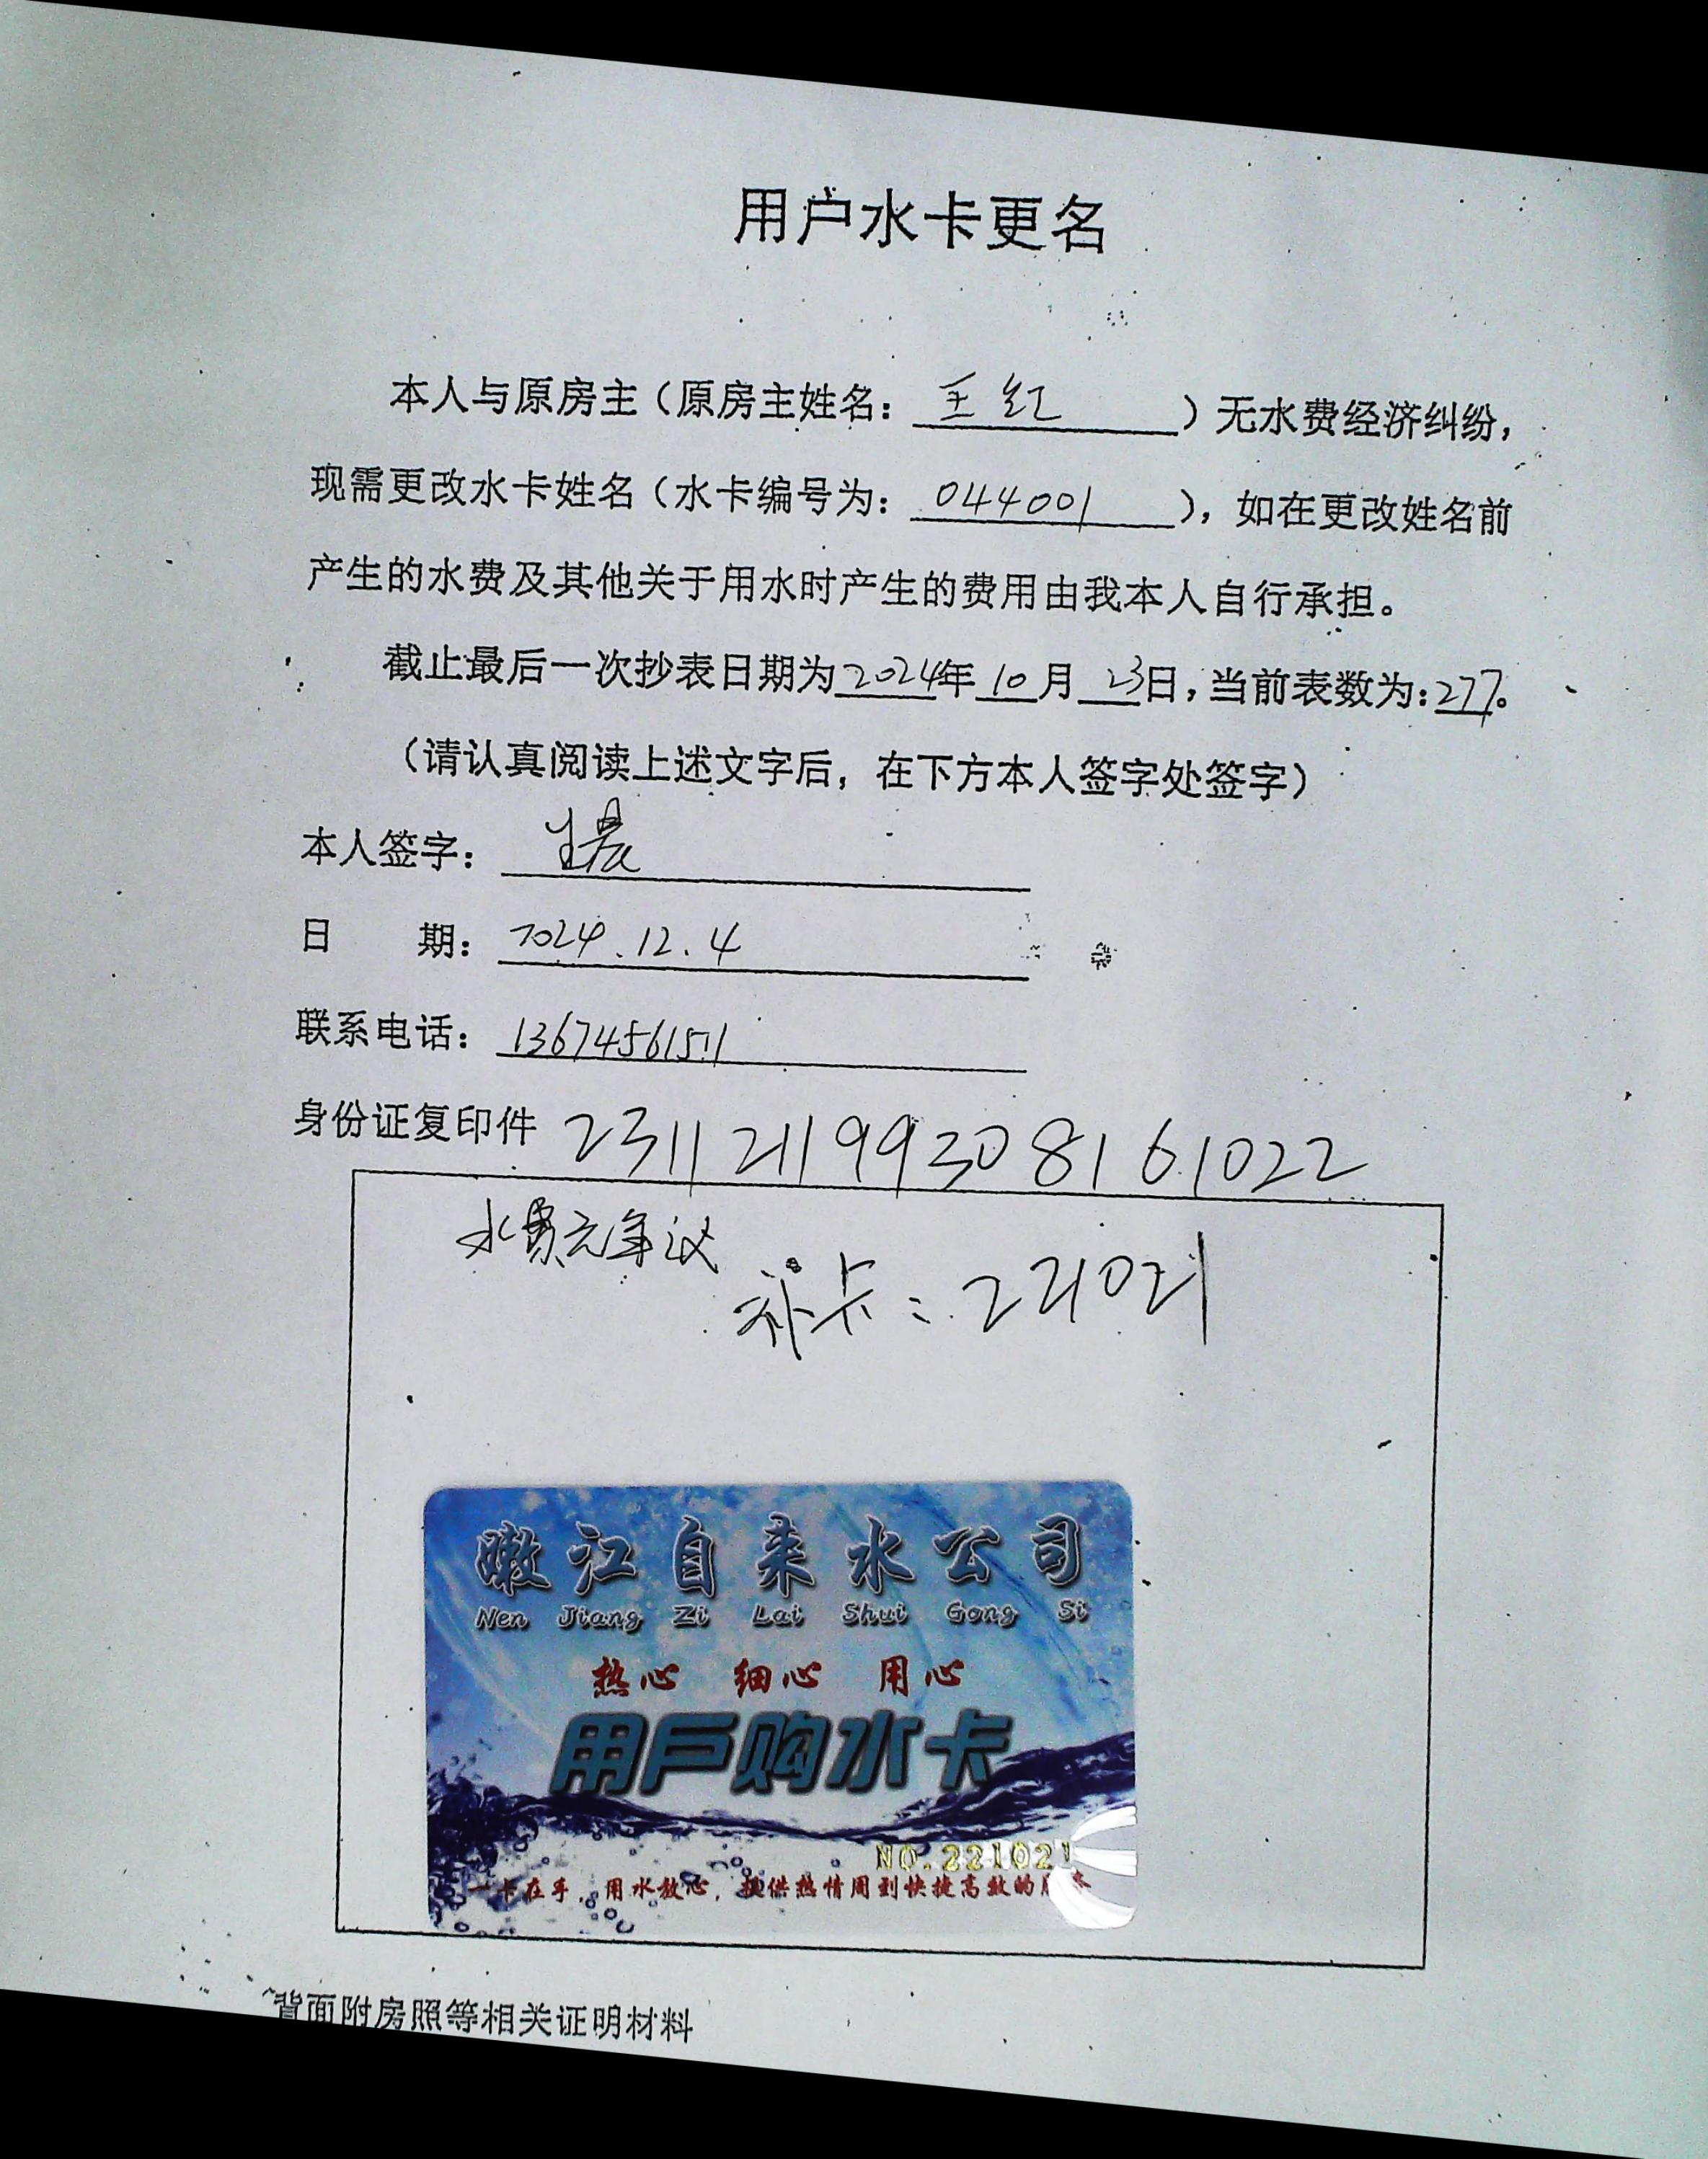 用户水卡更名
本人与原房主（原房主姓名：王红）无水费经济纠纷，
现需更改水卡姓名（水卡编号为：044001），如在更改姓名前
产生的水费及其他关于用水时产生的费用由我本人自行承担。
截止最后一次抄表日期为2024年10月23日，当前表数为：277。
（请认真阅读上述文字后，在下方本人签字处签字）
本人签字：
日 期：2024.12.4
联系电话：13674561511
身份证复印件 231121199308161022
水费无争议
补卡：221021
嫩江自来水公司
Nen Jiang Zi Lai Shui Gong Si
热心 细心 用心
用户购水卡
NO.221021
一卡在手，用水放心，提供热情周到快捷高效的服务
背面附房照等相关证明材料